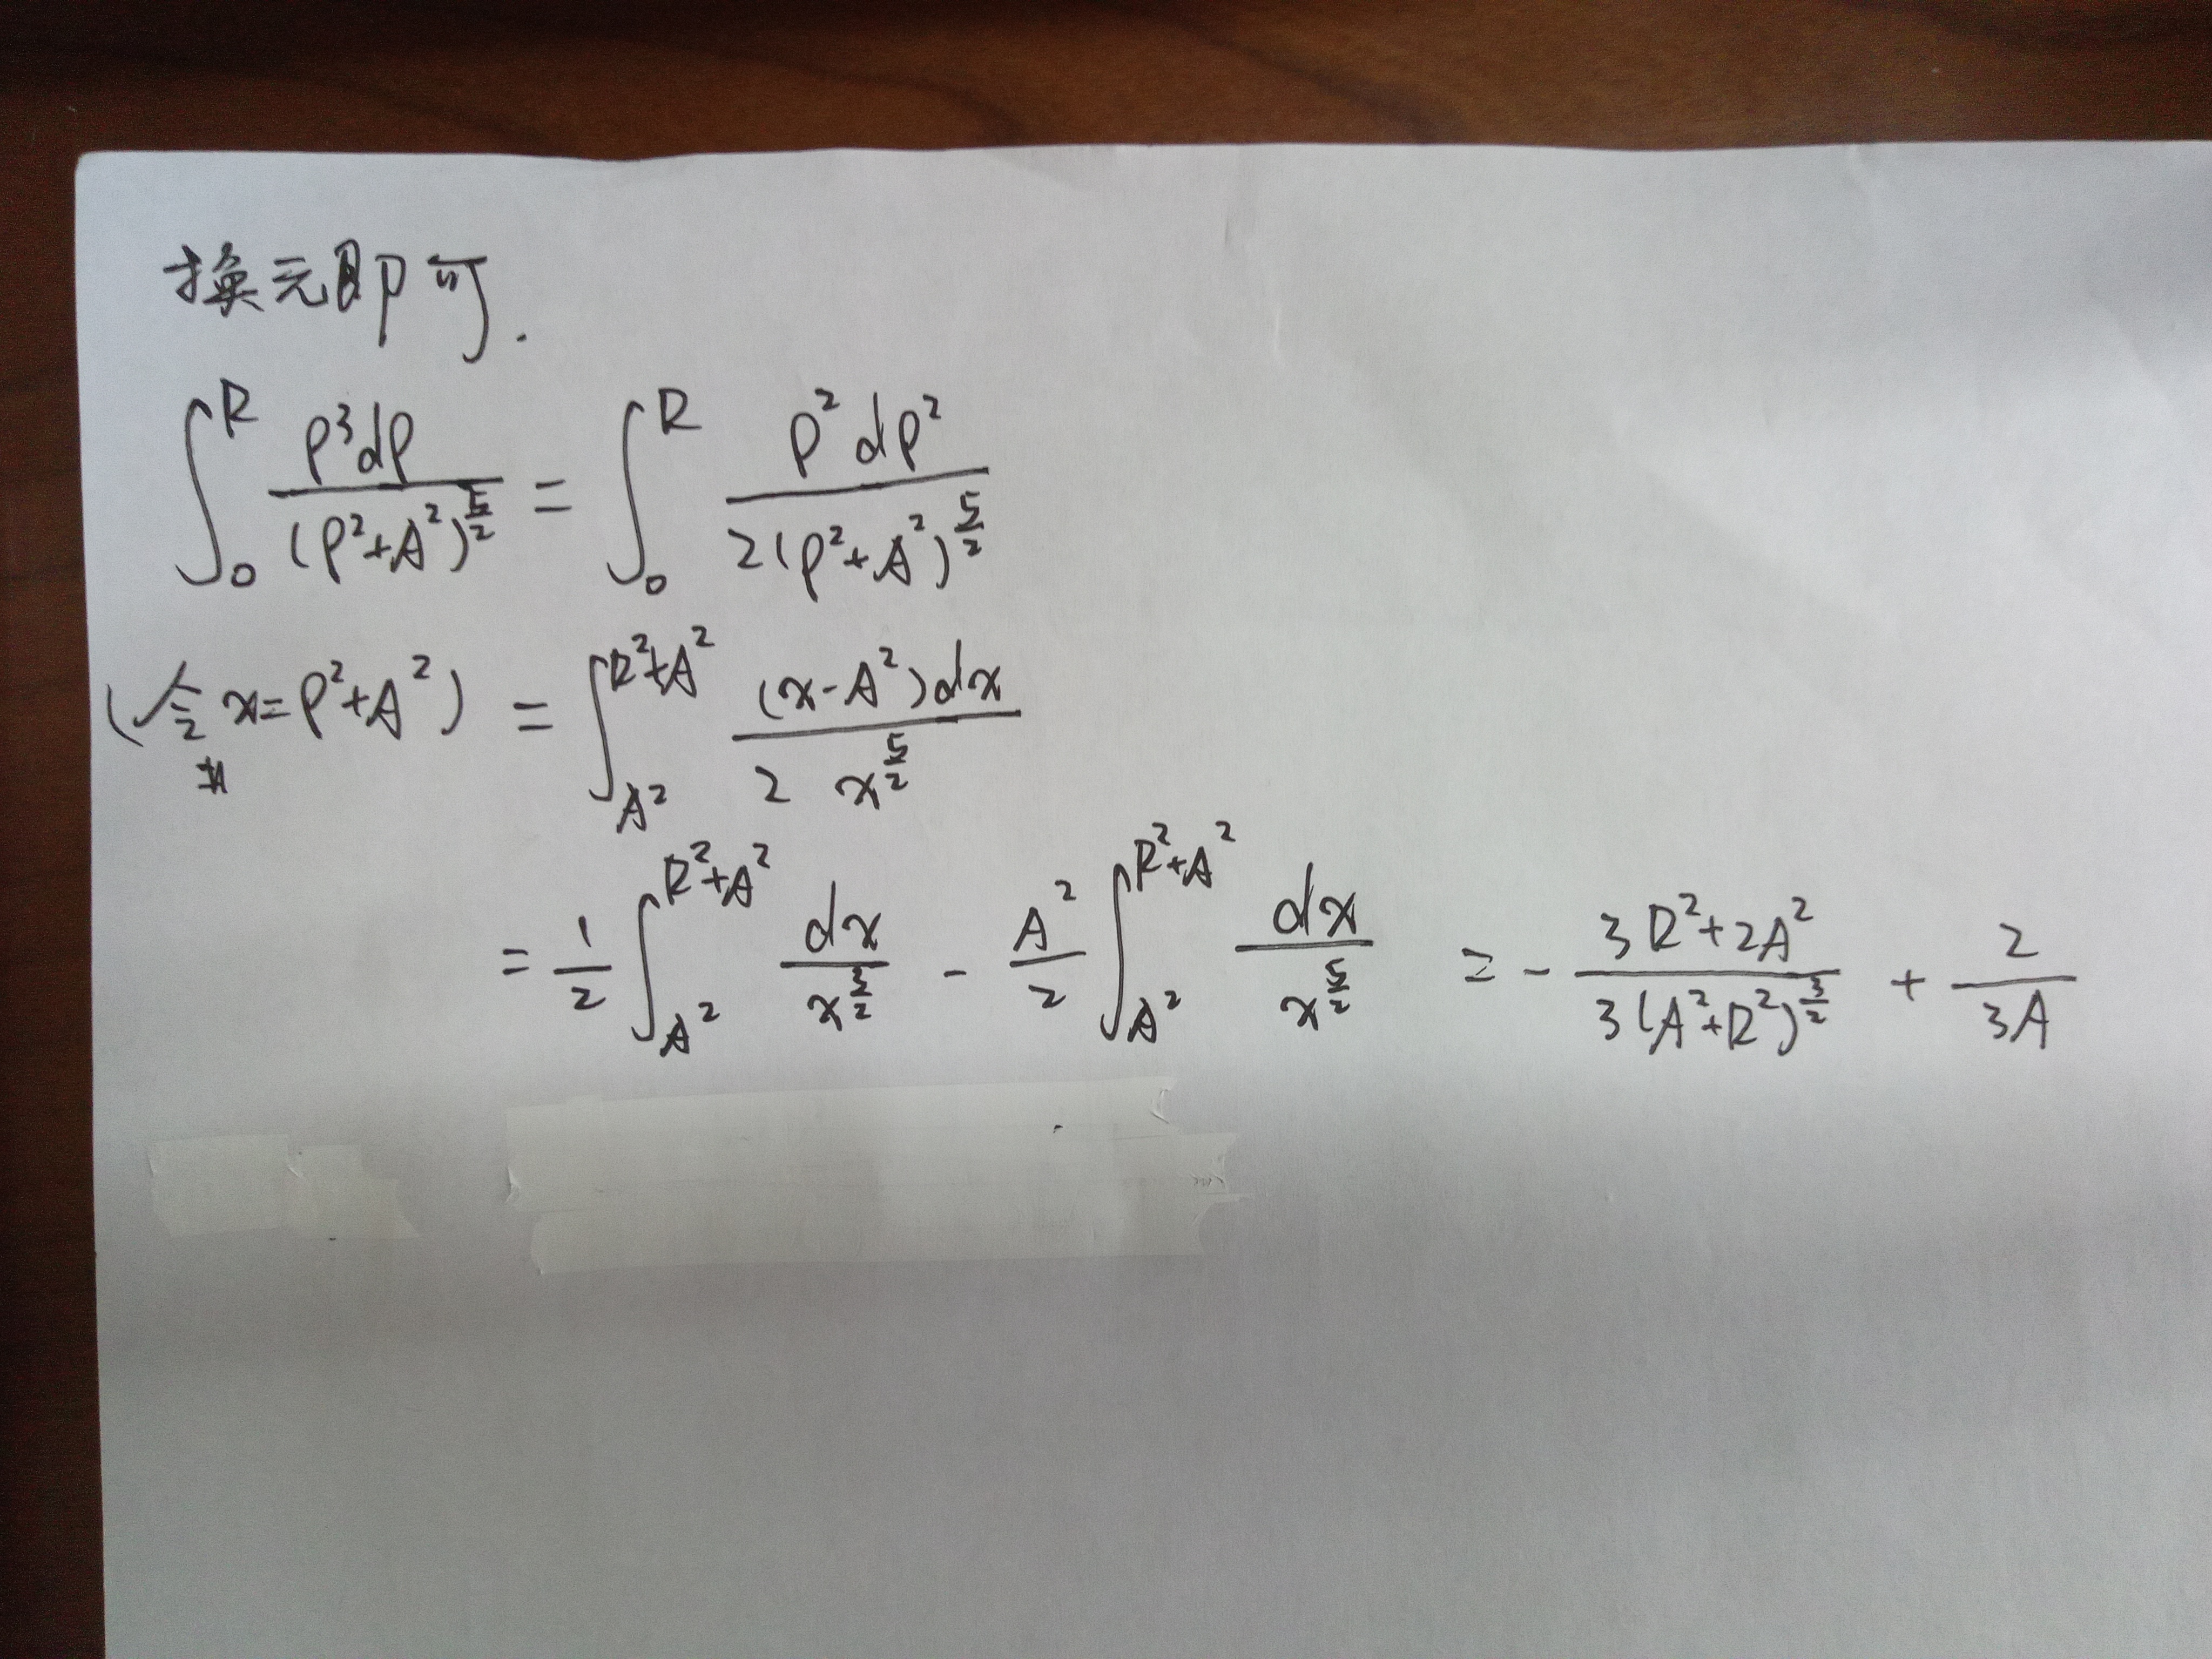 换元即可.
∫₀ᴿ ρ³dρ / (ρ²+A²)^(5/2) = ∫₀ᴿ ρ²dρ² / 2(ρ²+A²)^(5/2)
(令 x=ρ²+A²) = ∫_{A²}^{R²+A²} (x-A²)dx / 2 x^(5/2)
= 1/2 ∫_{A²}^{R²+A²} dx / x^(3/2) - A²/2 ∫_{A²}^{R²+A²} dx / x^(5/2) = - (3R²+2A²) / 3(A²+R²)^(3/2) + 2 / 3A